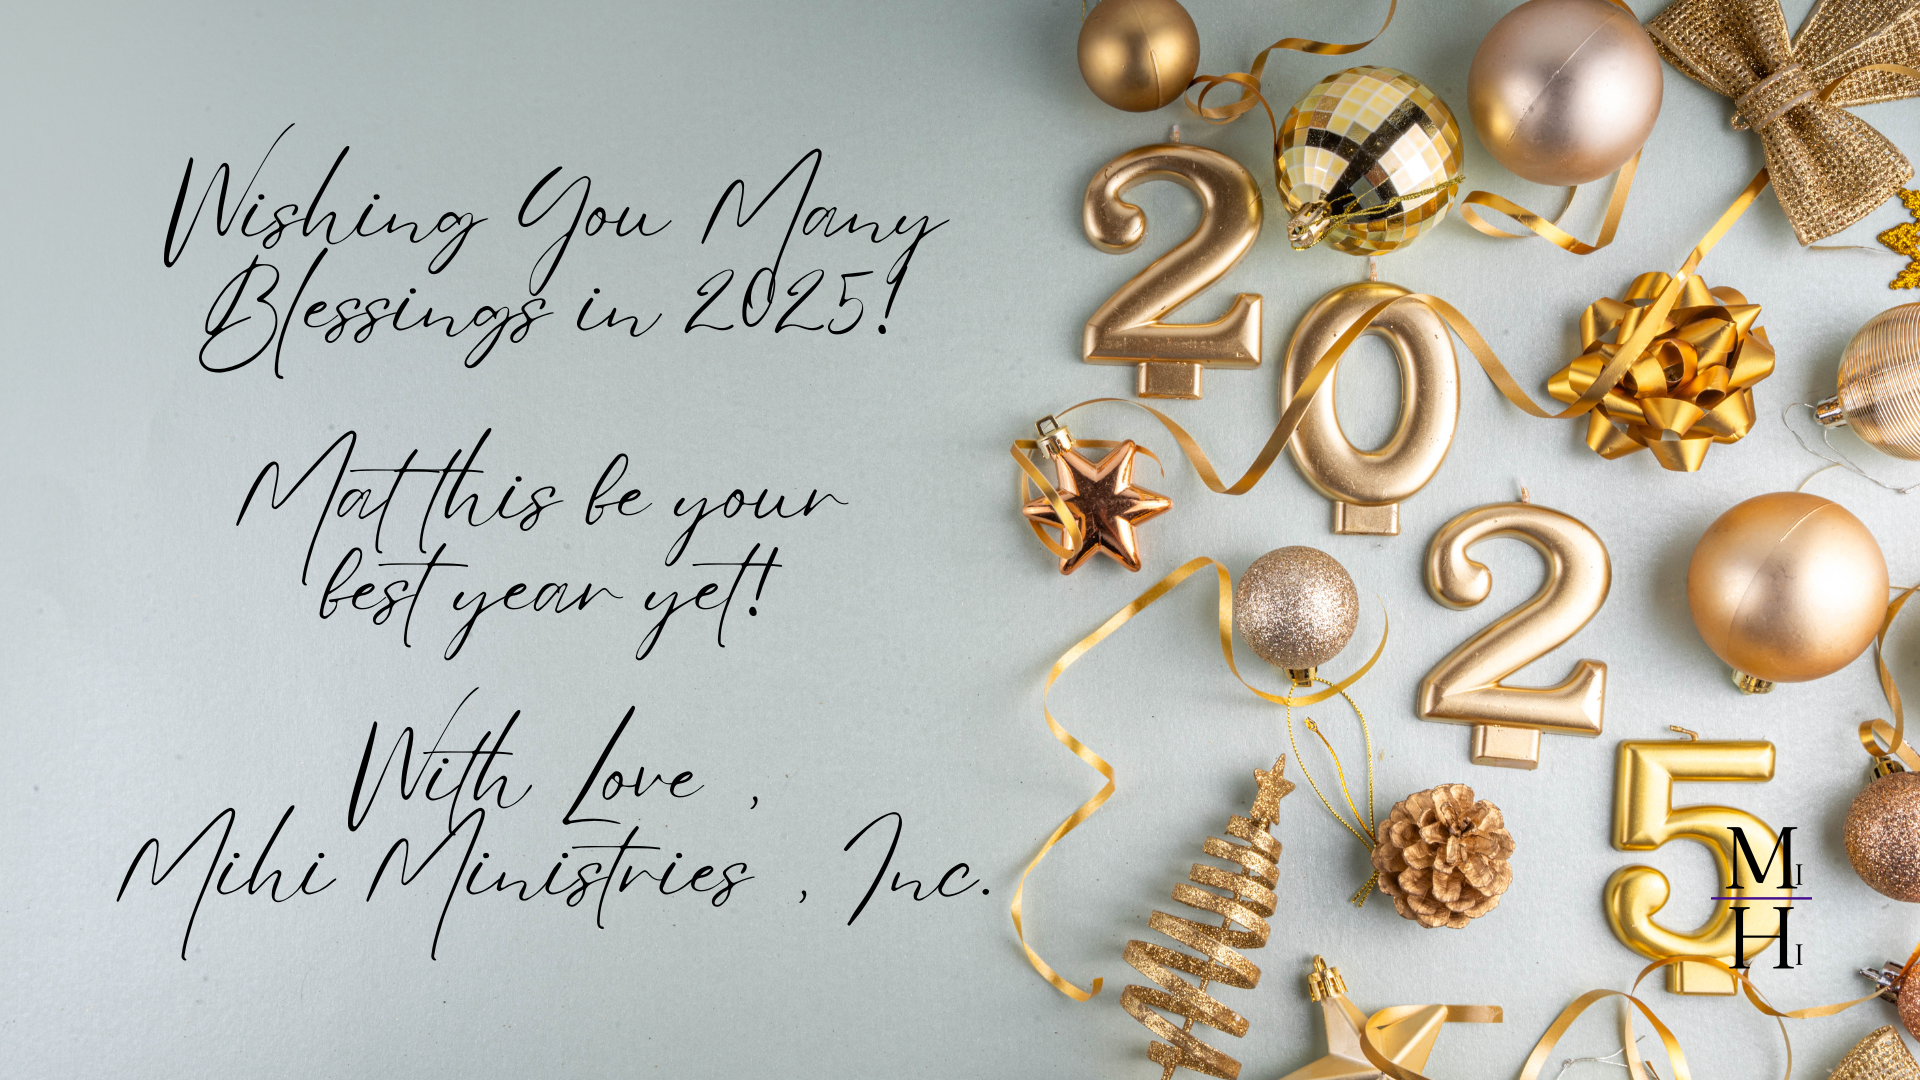 Wishing You Many
Blessings in 2025!
Mat this be your
best year yet!
With Love ,
Mihi Ministries , Inc.
2
0
2
5
MI
HI